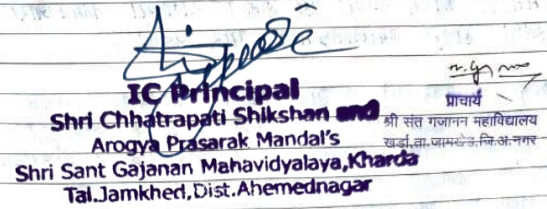 IC Principal
Shri Chhatrapati Shikshan and
Arogya Prasarak Mandal's
Shri Sant Gajanan Mahavidyalaya,Kharda
Tal.Jamkhed,Dist.Ahemednagar
प्राचार्य
श्री संत गजानन महाविद्यालय
खर्डा,ता.जामखेड,जि.अ.नगर